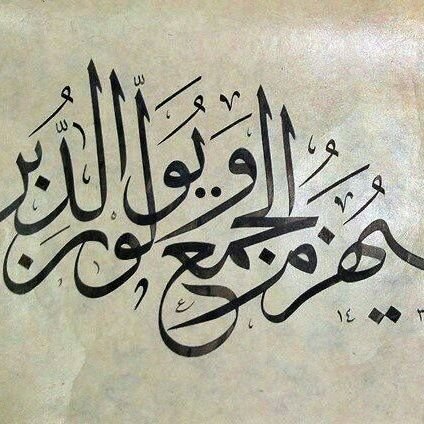 سَيُهْزَمُ الْجَمْعُ وَيُوَلُّونَ الدُّبُرَ
١٤